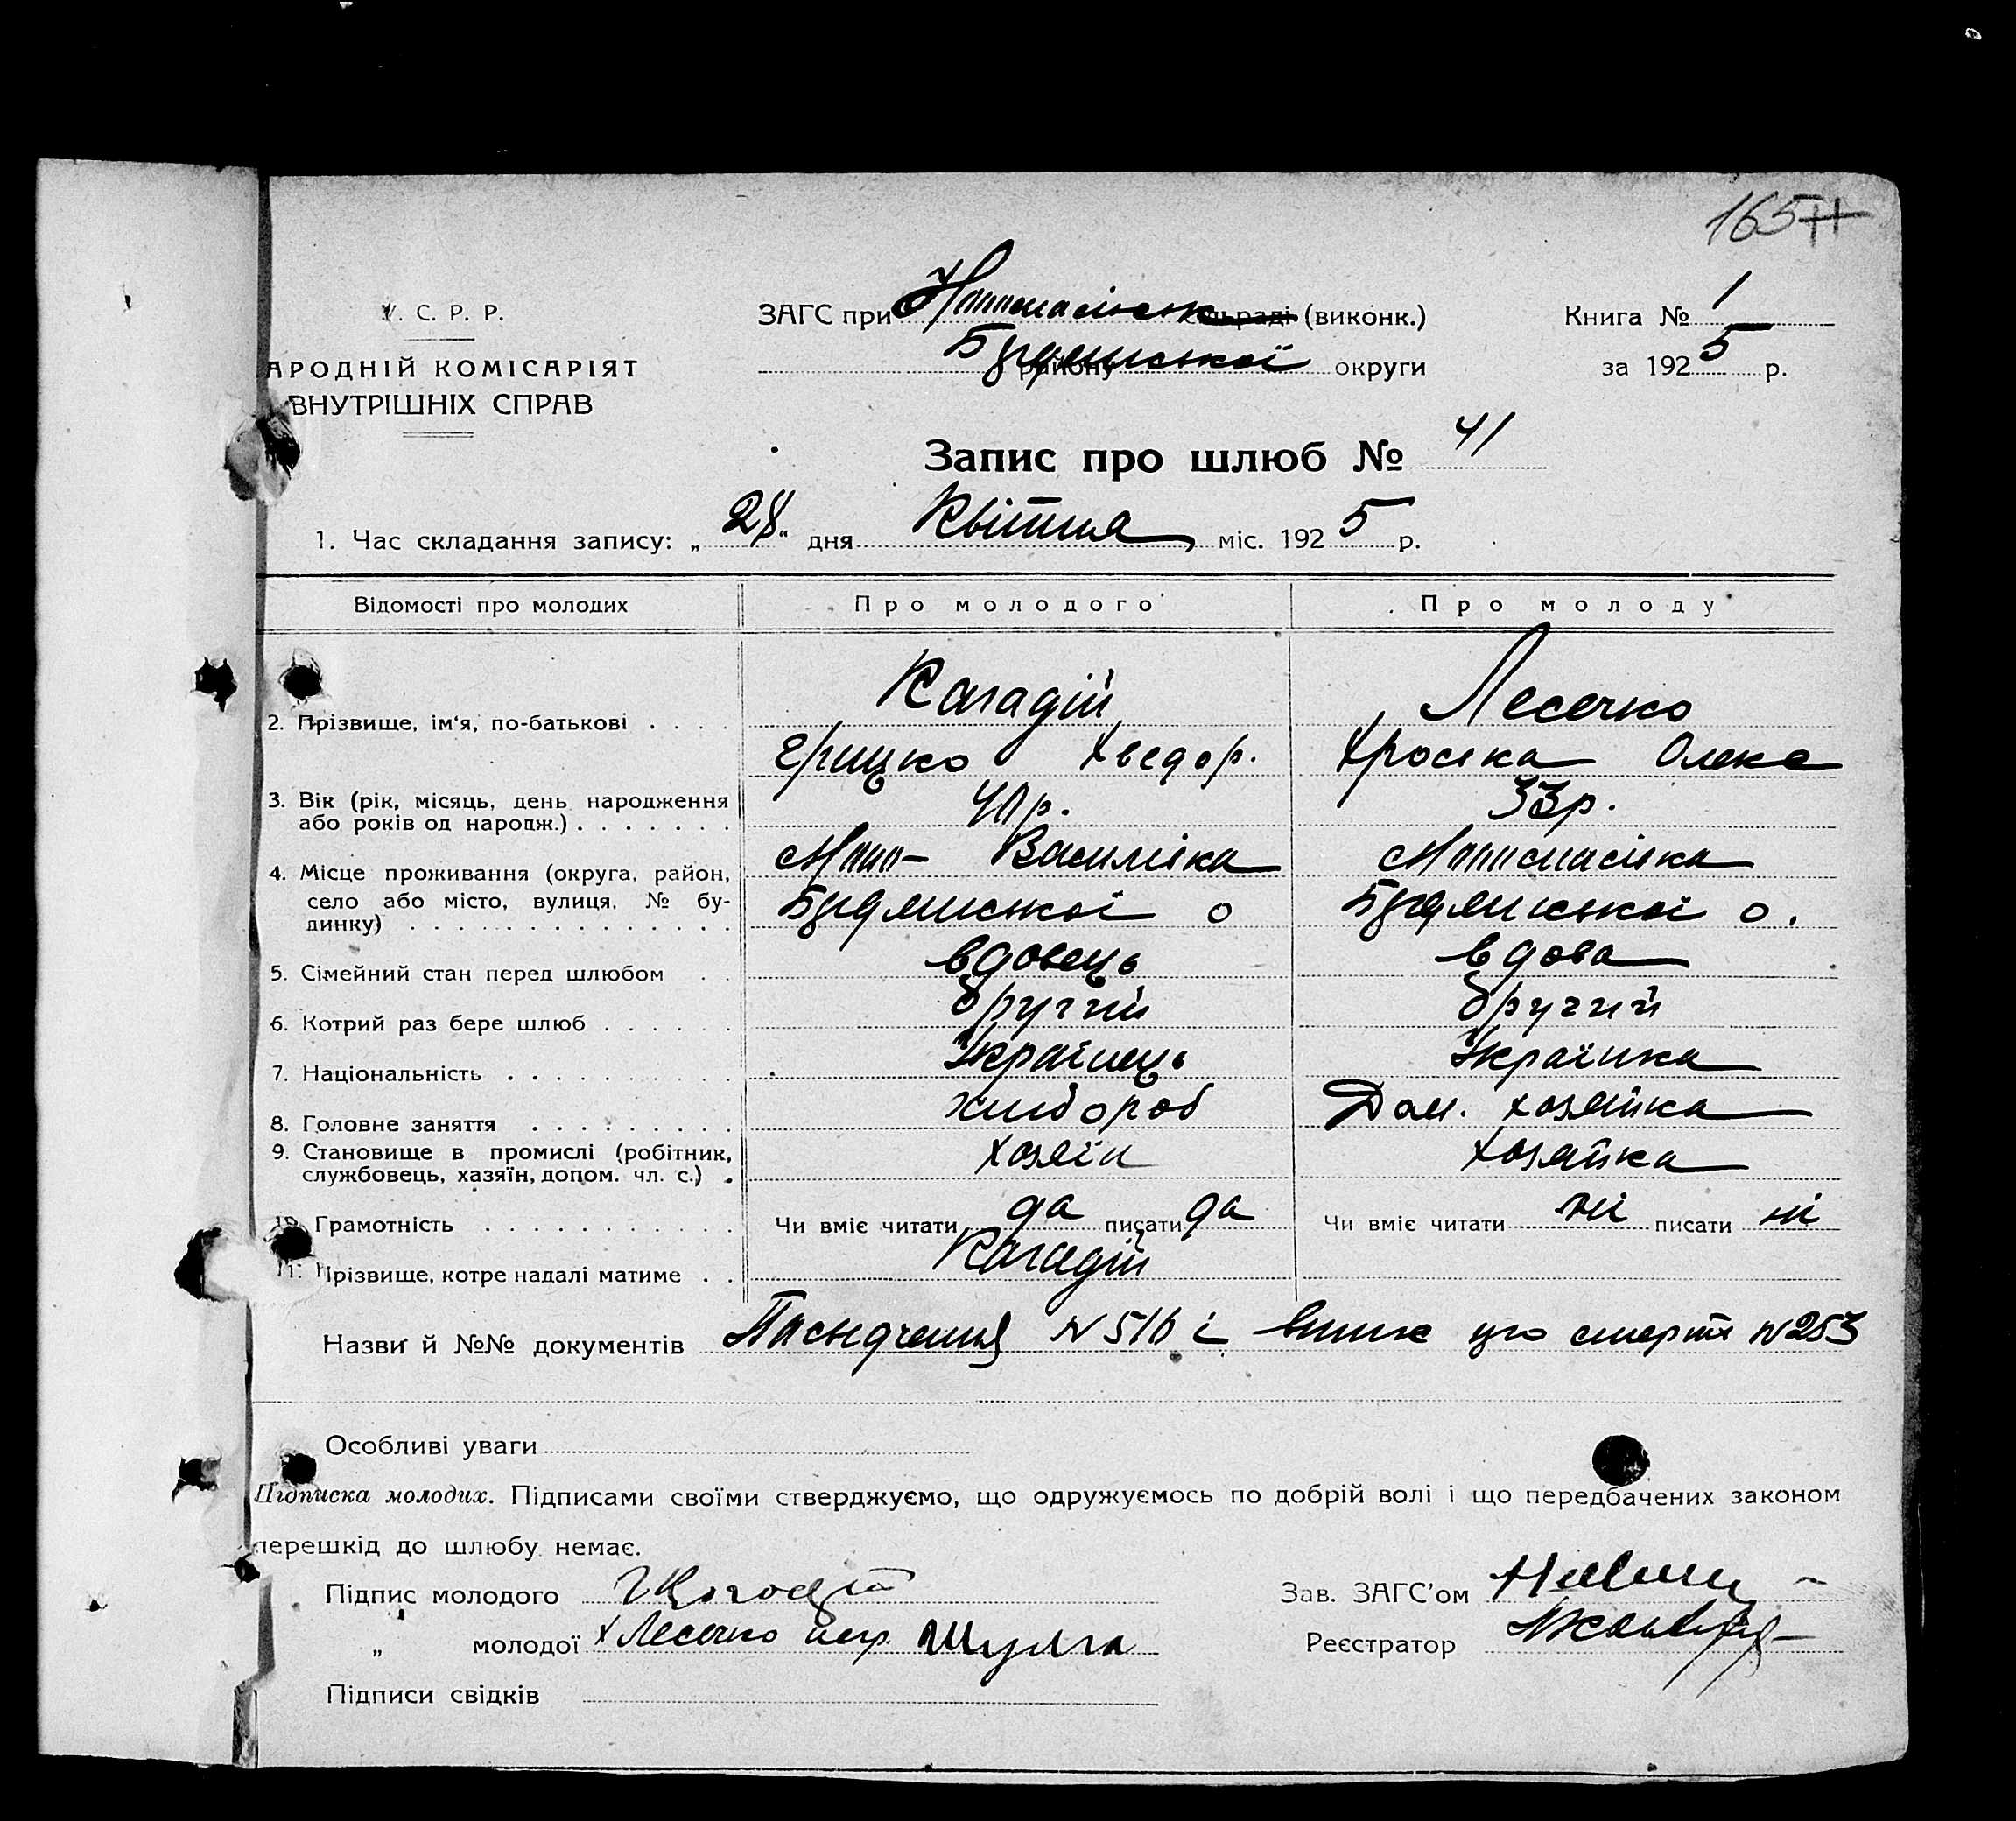 165
У. С. Р. Р.
АРОДНІЙ КОМІСАРІЯТ
ВНУТРІШНІХ СПРАВ
ЗАГС при сільраді (виконк.)
району округи
Книга № 1
за 1925 р.
Запис про шлюб № 41
1. Час складання запису: „28" дня Квітня міс. 1925 р.
Відомості про молодих Про молодого Про молоду
2. Прізвище, ім'я, по-батькові . . . . Кагадій Лесечко
Грицько Хведор. Хроська Олекс
3. Вік (рік, місяць, день народження або років од народж.) . . . . . . . р. 33р.
4. Місце проживання (округа, район, село або місто, вулиця, № будинку) . . . . . . . . . . . . . .
о о.
5. Сімейний стан перед шлюбом . . вдовець вдова
6. Котрий раз бере шлюб . . . . . . другий другий
7. Національність . . . . . . . . . . Українець Українка
8. Головне заняття . . . . . . . . . хлібороб Дом. хозяйка
9. Становище в промислі (робітник, службовець, хазяїн, допом. чл. с.) . хозяїн хозяйка
10. Грамотність . . . . . . . . . . . Чи вміє читати да писати да Чи вміє читати ні писати ні
11. Прізвище, котре надалі матиме . . Кагадій
Назви й №№ документів Посьвдчення N 516 і смерть N 253
Особливі уваги
Підписка молодих. Підписами своїми стверджуємо, що одружуємось по добрій волі і що передбачених законом
перешкід до шлюбу немає.
Підпис молодого Зав. ЗАГС'ом
„ молодої х Лесечко негр. Шулга Реєстратор
Підписи свідків